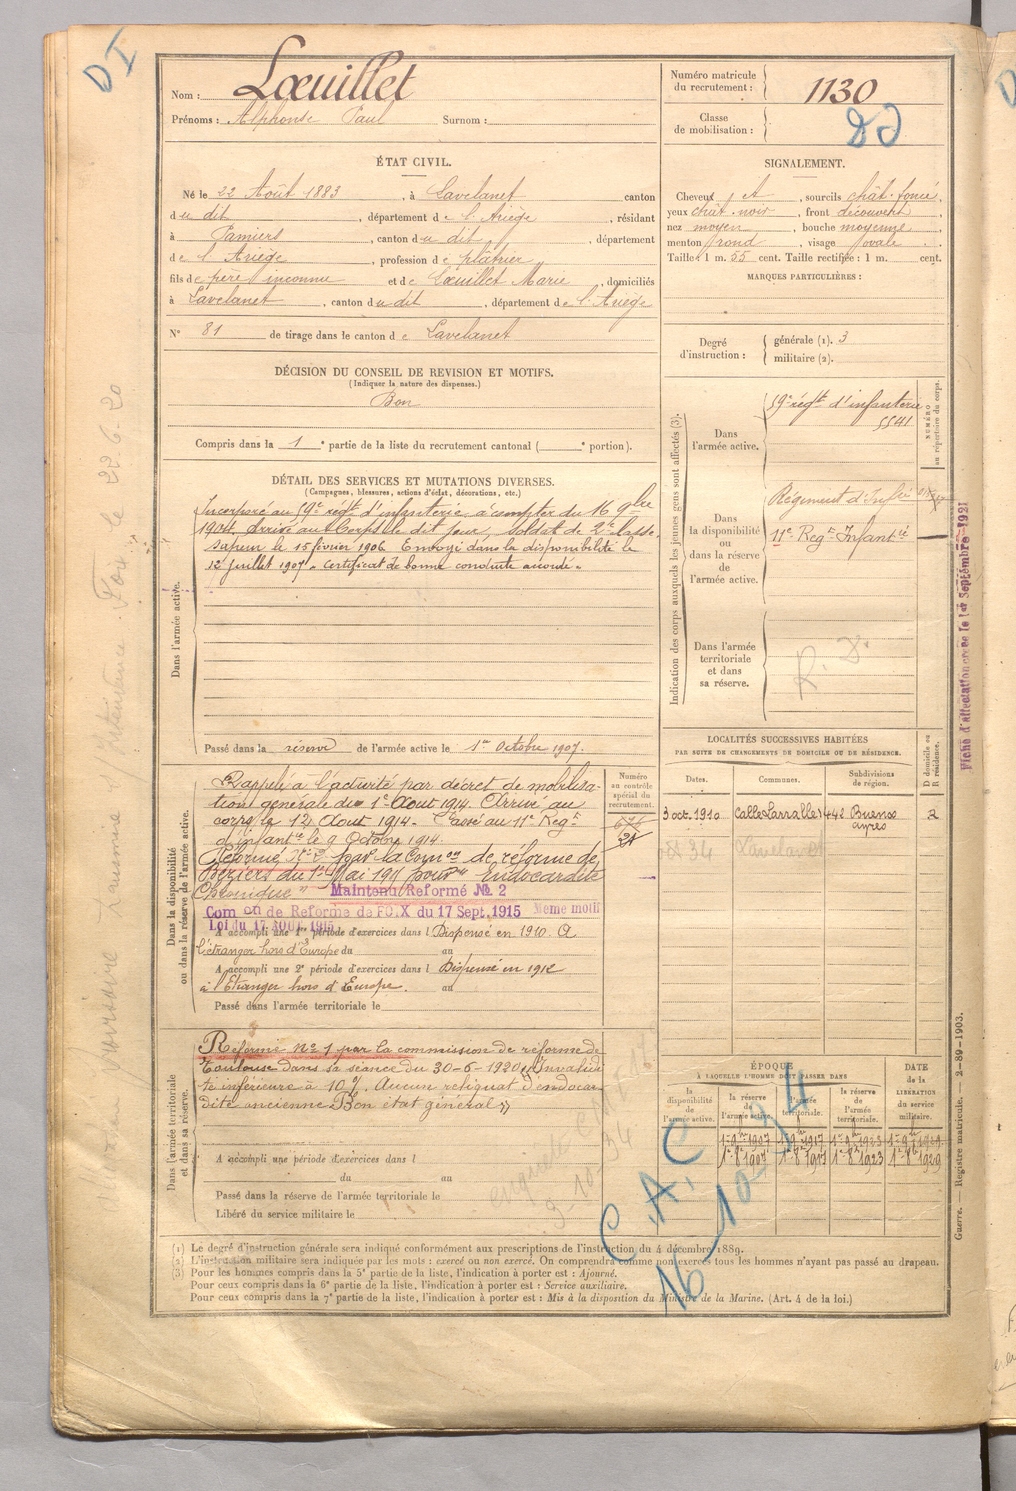 D I
Nom : Lœuillet
Prénoms : Alphonse Paul Surnom :
Numéro matricule du recrutement : 1130
Classe de mobilisation :
ÉTAT CIVIL.
Né le 22 Août 1883, à Lavelanet canton
du dit, département de l'Ariège, résidant
à Pamiers, canton du dit, département
de l'Ariège, profession de plâtrier
fils de père inconnu et de Lœuillet Marie, domiciliés
à Lavelanet, canton du dit, département de l'Ariège
N° 81 de tirage dans le canton de Lavelanet
SIGNALEMENT.
Cheveux et, sourcils chât. foncé,
yeux chât noir, front découvert,
nez moyen, bouche moyenne,
menton rond, visage ovale.
Taille : 1 m. 55 cent. Taille rectifiée : 1 m. cent.
MARQUES PARTICULIÈRES :
Degré d'instruction : générale (1). 3
militaire (2).
DÉCISION DU CONSEIL DE REVISION ET MOTIFS.
(Indiquer la nature des dispenses.)
Bon
Compris dans la 1e partie de la liste du recrutement cantonal ( e portion).
DÉTAIL DES SERVICES ET MUTATIONS DIVERSES.
(Campagnes, blessures, actions d'éclat, décorations, etc.)
Dans l'armée active.
Incorporé au 59e régt d'infanterie à compter du 16 9bre
1904. Arrivé au Corps le dit jour, soldat de 2e classe.
Sapeur le 15 février 1906. Envoyé dans la disponibilité le
12 juillet 1907. Certificat de bonne conduite accordé.
Passé dans la réserve de l'armée active le 1er Octobre 1907.
Indication des corps auxquels les jeunes gens sont affectés (3).
NUMÉRO au répertoire du corps.
Dans l'armée active.
59e régt d'infanterie
5541
Dans la disponibilité ou dans la réserve de l'armée active.
Régiment d'Infie
11e Regt Infantie
Dans l'armée territoriale et dans sa réserve.
Fiche d'affectation créée le 1er Septembre 1921
Dans la disponibilité ou dans la réserve de l'armée active.
Numéro au contrôle spécial du recrutement.
Rappelé à l'activité par décret de mobilisa-
tion générale du 1er Aout 1914. Arrivé au
corps le 12 Aout 1914. Passé au 11e Regt
d'infantie le 9 Octobre 1914.
Réformé N° 2 par la Comon de réforme de
Béziers du 1er Mai 1915 pour "Endocardite
Chronique"
Maintenu Réformé № 2
Comon de Réforme de FOIX du 17 Sept. 1915 Meme motif
Loi du 17 AOUT 1915
A accompli une 1re période d'exercices dans l Dispensé en 1910. A
l'étranger hors d'Europe du au
A accompli une 2e période d'exercices dans l Dispensé en 1912
à l'Etranger hors d'Europe. au
Passé dans l'armée territoriale le
LOCALITÉS SUCCESSIVES HABITÉES
PAR SUITE DE CHANGEMENTS DE DOMICILE OU DE RÉSIDENCE.
Dates. Communes. Subdivisions de région. D domicile ou R résidence.
3 oct. 1910 Calle Larralle 442 Buenos ayres R
34 Lavelanet
Dans l'armée territoriale et dans sa réserve.
Reformé N° 1 par la commission de réforme de
Toulouse dans sa séance du 30-6-1920 "Invalidi-
té inférieure à 10 %. Aucun reliquat d'endocar-
dite ancienne Bon état général"
A accompli une période d'exercices dans l
du au
Passé dans la réserve de l'armée territoriale le
Libéré du service militaire le
ÉPOQUE
À LAQUELLE L'HOMME DOIT PASSER DANS
la disponibilité de l'armée active. la réserve de l'armée active. l'armée territoriale. la réserve de l'armée territoriale. DATE de la LIBÉRATION du service militaire.
C.A.C
16 10-34
(1) Le degré d'instruction générale sera indiqué conformément aux prescriptions de l'instruction du 4 décembre 1889.
(2) L'instruction militaire sera indiquée par les mots : exercé ou non exercé. On comprendra comme non exercés tous les hommes n'ayant pas passé au drapeau.
(3) Pour les hommes compris dans la 5e partie de la liste, l'indication à porter est : Ajourné.
Pour ceux compris dans la 6e partie de la liste, l'indication à porter est : Service auxiliaire.
Pour ceux compris dans la 7e partie de la liste, l'indication à porter est : Mis à la disposition du Ministre de la Marine. (Art. 4 de la loi.)
Guerre. — Registre matricule. 2-89-1903.